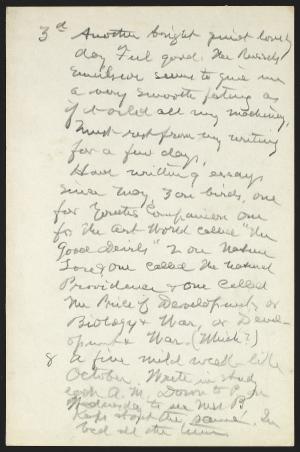 3d Another bright quiet lovely
day. Feel good. The Russian
Emulsion seems to give me
a very smooth feeling as
if it oiled all my machinery,
Must rest from my writing
for a few days,
Have written essays
since Nov, 3 on birds, one
for Youths Companion one
for the Art World called "The
Good Devils" 2 on Nature
Lore & one called The Natural
Providence & one called
The Price of Development, or
Biology & War, or Devel-
opment & War. (Which?)
8 a fine mild week like
October. Write in study
each A.M. Down to P. on
Wednesday to see Mrs B
Keeps about the same. In
bed all the time